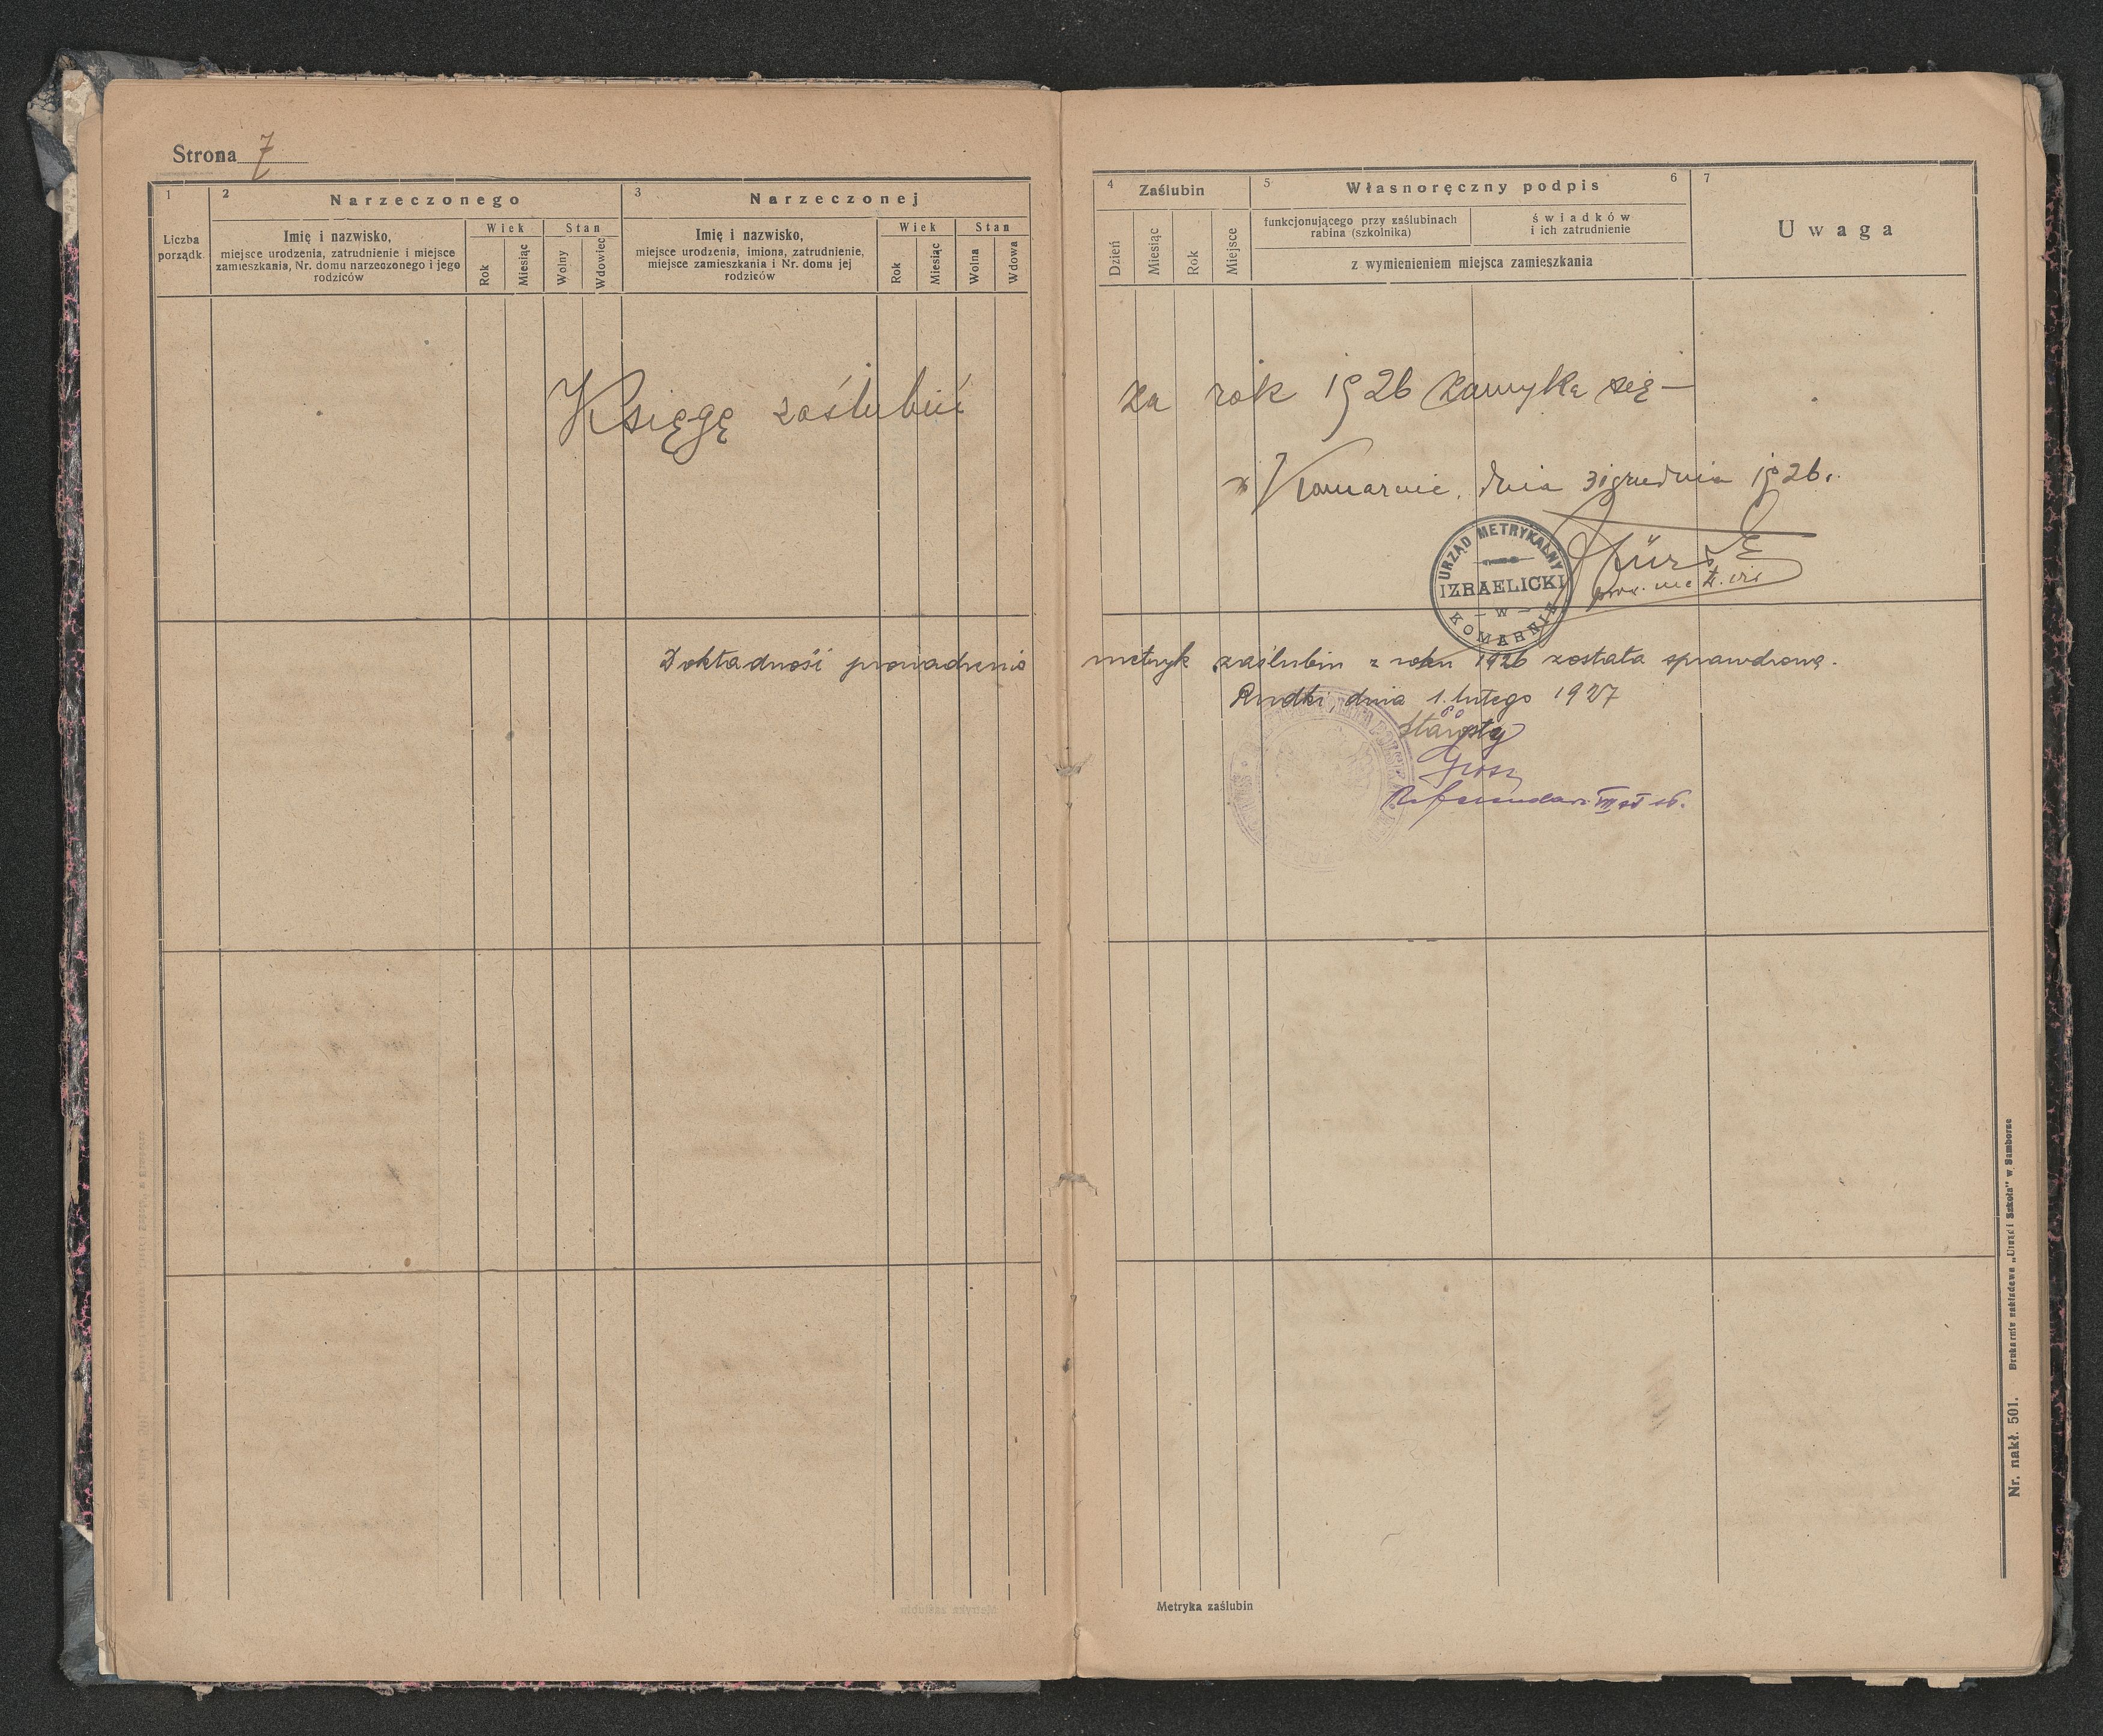 Strona 7
1
2
Narzeczonego
3
Narzeczonej
Liczba
porządk.
Imię i nazwisko,
miejsce urodzenia, zatrudnienie i miejsce
zamieszkania, Nr. domu narzeczonego i jego
rodziców
Wiek
Rok
Miesiąc
Stan
Wolny
Wdowiec
Imię i nazwisko,
miejsce urodzenia, imiona, zatrudnienie,
miejsce zamieszkania i Nr. domu jej
rodziców
Wiek
Rok
Miesiąc
Stan
Wolna
Wdowa
4
Zaślubin
Dzień
Miesiąc
Rok
Miejsce
5
Własnoręczny podpis
6
funkcjonującego przy zaślubinach
rabina (szkolnika)
świadków
i ich zatrudnienie
z wymienieniem miejsca zamieszkania
7
Uwaga
Księgę zaślubin za rok 1926 zamyka się —
w Komarnie, dnia 31 grudnia 1926.
URZĄD METRYKALNY
IZRAELICKI
— W —
KOMARNIE
Dokładność prowadzenia metryk zaślubin z roku 1926 została sprawdzona.
Rudki, dnia 1. lutego 1927
Starosty
Referendarz VIII st. sł.
Metryka zaślubin
Nr. nakł. 501. Drukarnia nakładowa „Urząd i Szkoła" w Samborze